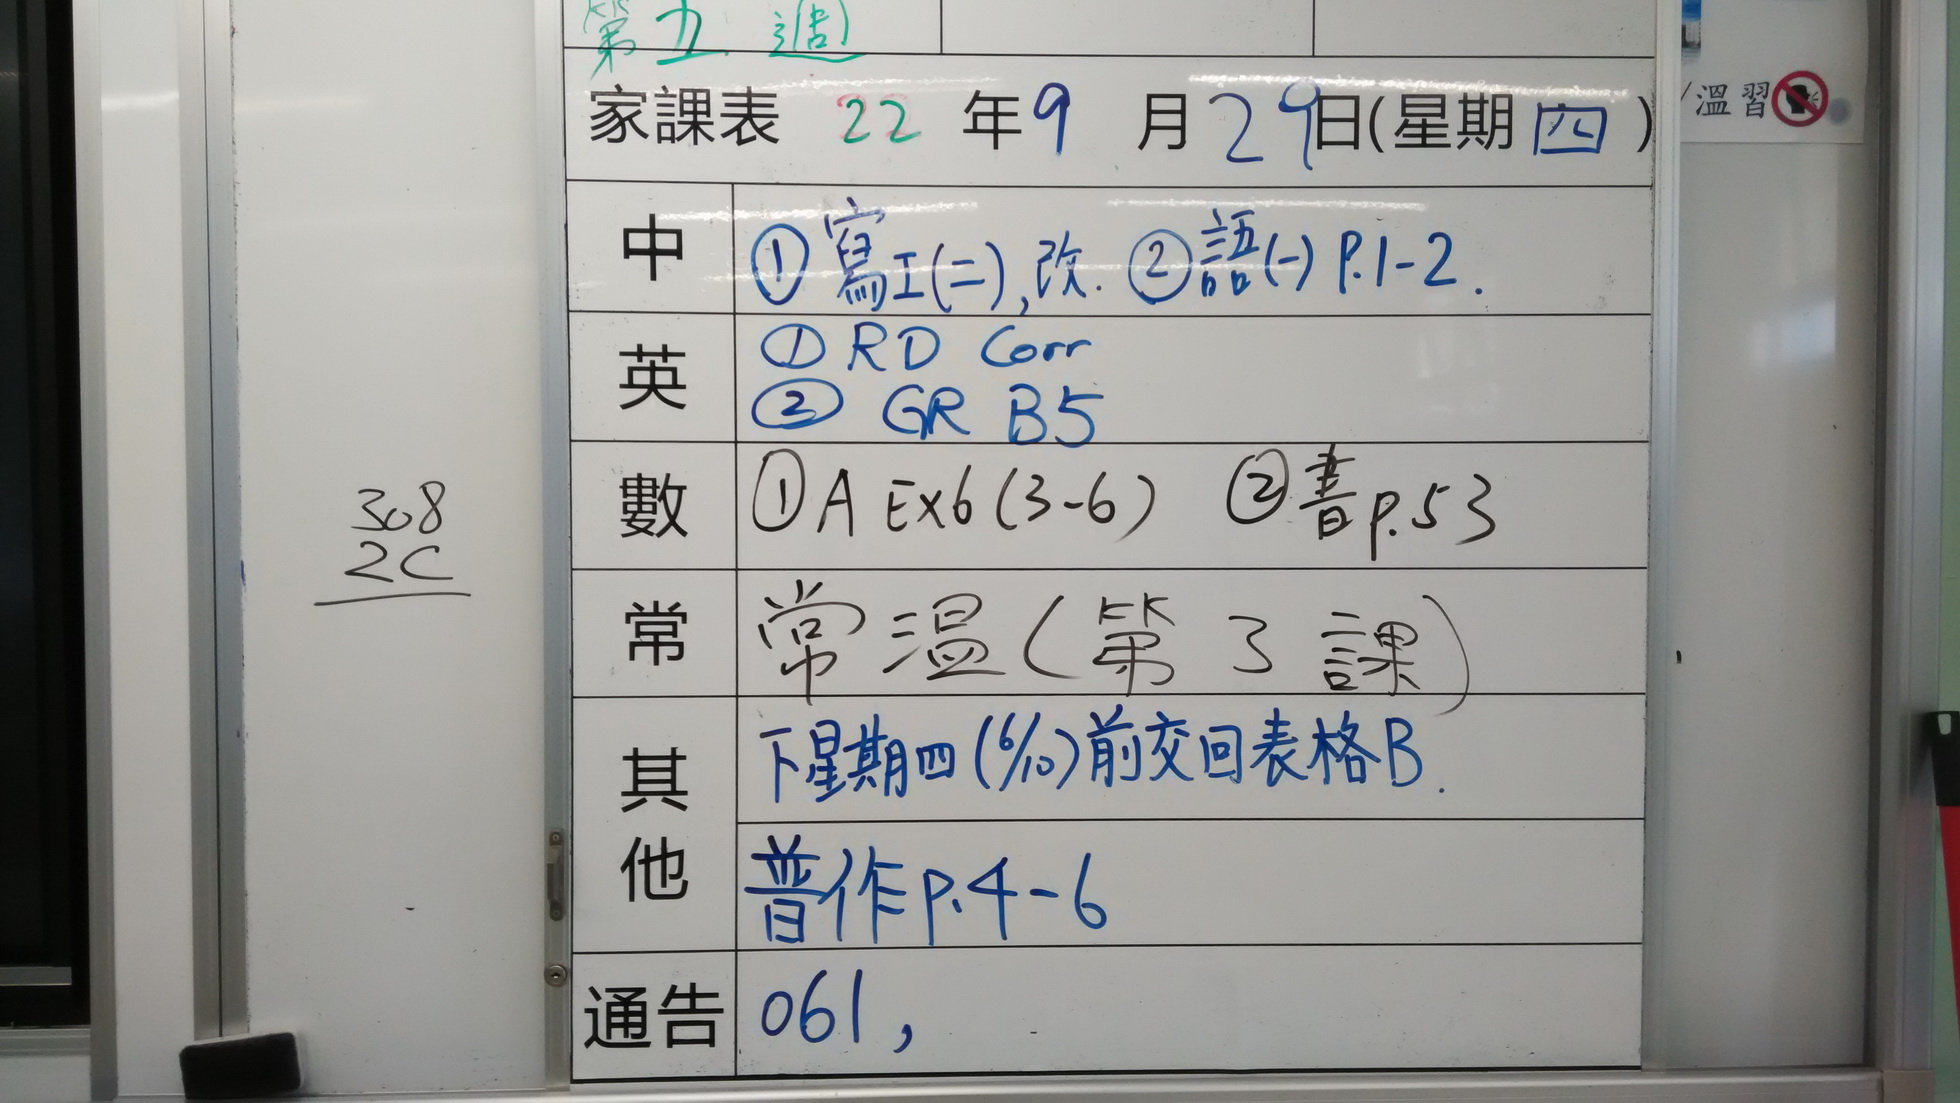 第五週
家課表 22 年 9 月 29 日(星期 四 )
/溫習
中 ①寫工(二),改. ②語(一) P.1-2.
英 ① RD Corr
② GR B5
數 ①A Ex6 (3-6) ②書 p.53
308
2C
常 常溫(第3課)
其他 下星期四(6/10)前交回表格B.
普作 p.4-6
通告 061,